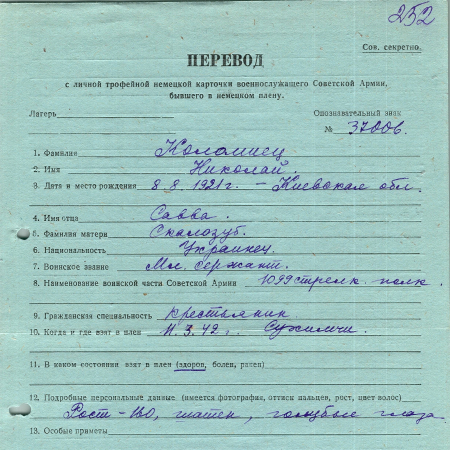 252
Сов. секретно.
ПЕРЕВОД
с личной трофейной немецкой карточки военнослужащего Советской Армии,
бывшего в немецком плену.
Лагерь
Опознавательный знак
№ 37006.
1. Фамилия Коломиец
2. Имя Николай.
3. Дата и место рождения 8.8.1921 г. – Киевская обл.
4. Имя отца Савва.
5. Фамилия матери Скалозуб.
6. Национальность Украинец.
7. Воинское звание Мл. сержант.
8. Наименование воинской части Советской Армии 1099 стрелк. полк.
9. Гражданская специальность крестьянин
10. Когда и где взят в плен 11.3.42 г.
11. В каком состоянии взят в плен (здоров, болен, ранен)
12. Подробные персональные данные (имеется фотография, оттиск пальцев, рост, цвет волос)
Рост – , шатен, голубые глаза
13. Особые приметы